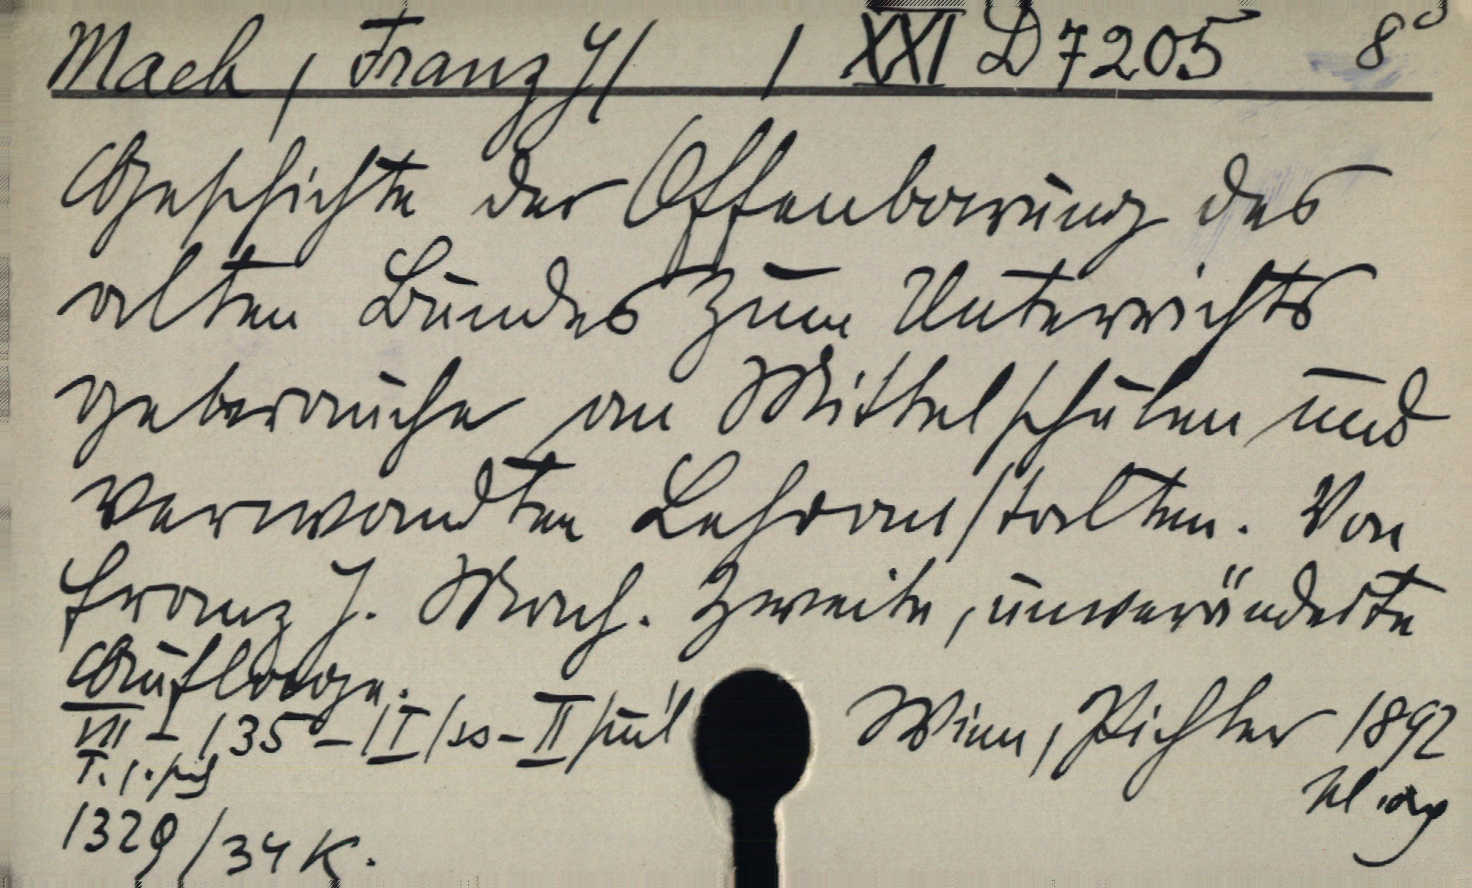 Mach, Franz J/ / XXI D 7205 8°
Geschichte der Offenbarung des
alten Bundes zum Unterrichts
gebrauche an Mittelschulen und
verwandten Lehranstalten. Von
Franz J. Mach. Zweite, unveränderte
Auflage.
VII - 135 - Wien, Pichler 1892
1329/34 K.